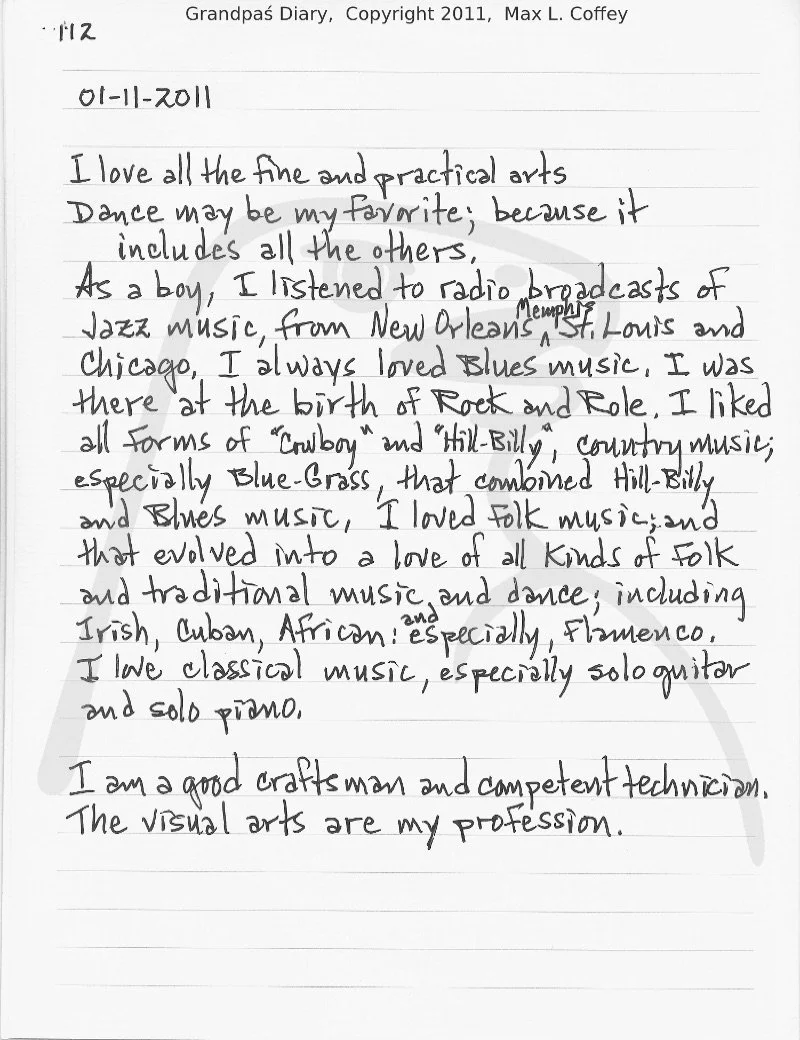 Grandpaś Diary, Copyright 2011, Max L. Coffey
112
01-11-2011
I love all the fine and practical arts
Dance may be my favorite; because it
includes all the others.
As a boy, I listened to radio broadcasts of
Memphis
Jazz music, from New Orleans ^ St. Louis and
Chicago, I always loved Blues music. I was
there at the birth of Rock and Role. I liked
all forms of "Cowboy" and "Hill-Billy", country music;
especially Blue-Grass, that combined Hill-Billy
and Blues music, I loved Folk music; and
that evolved into a love of all Kinds of Folk
and traditional music, and dance; including
and
Irish, Cuban, African: especially, Flamenco.
I love classical music, especially solo guitar
and solo piano.
I am a good craftsman and competent technician.
The visual arts are my profession.